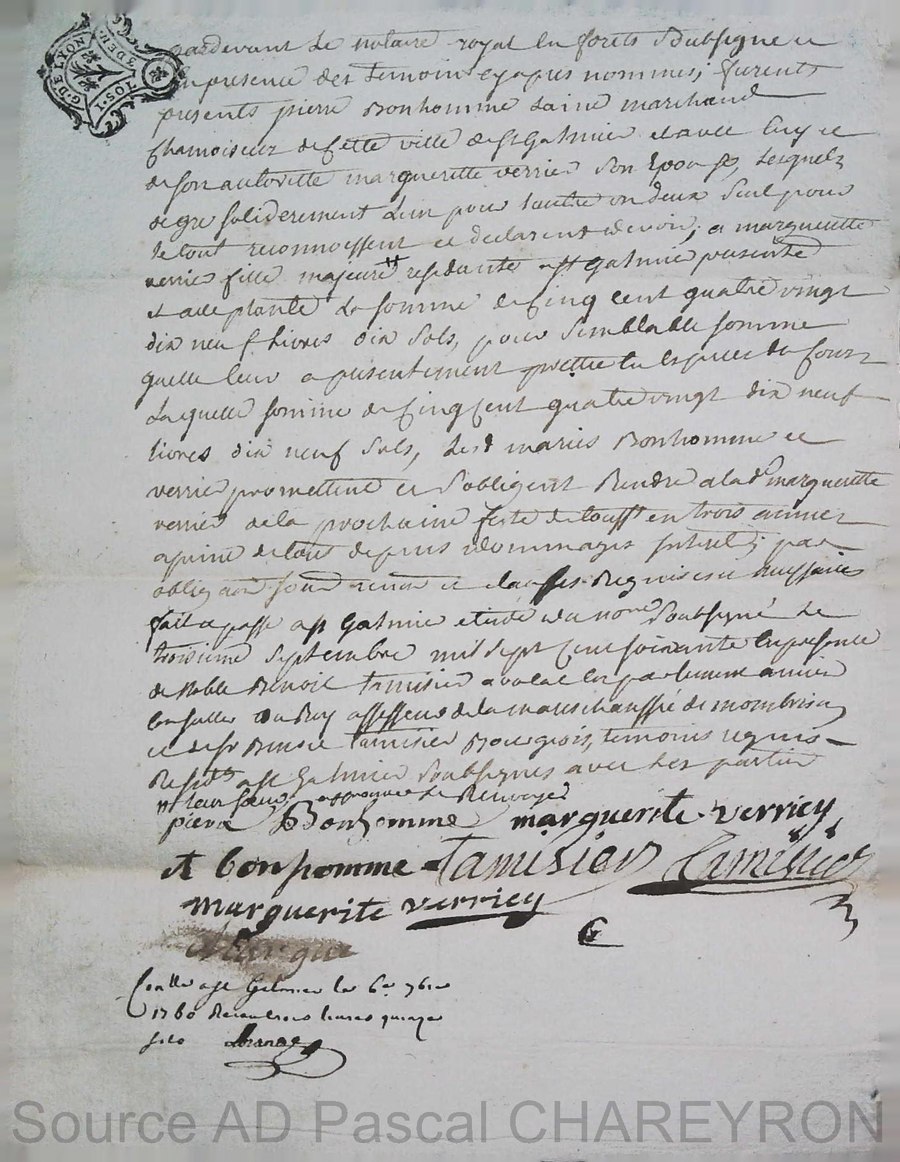 G.D.E LYON
3 DEN.
1 SOL
pardevant le notaire royal en forets soubsigne et
en presence des temoins cy apres nommes, furent
presents pierre Bonhomme laine marchand
chamoiseur de cette ville de st Galmier et avec luy et
de son authorité marguerite verrier son Epouse, lesquels
de gre soliderement l'un pour l'autre un deux seul pour
le tout reconnoissent et declarent devoir, a marguerite
verrier fille majeure # residante a st Galmier presente
et acceptante la somme de Cinq cent quatre vingt
dix neuf livres dix sols, pour semblable somme
quelle leur a presentement prettée en especes du Cours
laquelle somme de Cinq Cent quatre vingt dix neuf
livres dix neuf sols, lesd maries Bonhomme et
verrier promettent et s'obligent Rendre a lad marguerite
verrier de la prochaine feste de touss en trois annees
a peine de tous depens dommages interets, par
oblig aon soum renon et clauses Requises et necessaires
fait et passé a st Galmier etude du nore soubsigné le
troisieme septembre mil sept cent soixante en presence
de Noble Benoit Tamisier avocat en parlement ancien
Conseiller du Roy assesseur de la mareschaussée de montbrison
et de sr Benoit Tamisier Bourgeois, temoins requis
Residts a st Galmier soubsignes avec les parties
# leur soeur approuvé le Renvoye
piere Bonhomme marguerite verriey
A bonhomme Tamisier Tamisier
marguerite verriey
Conlle a st Galmier le 6e 7bre
1760 Recu trois livres quinze
sols
Source AD Pascal CHAREYRON